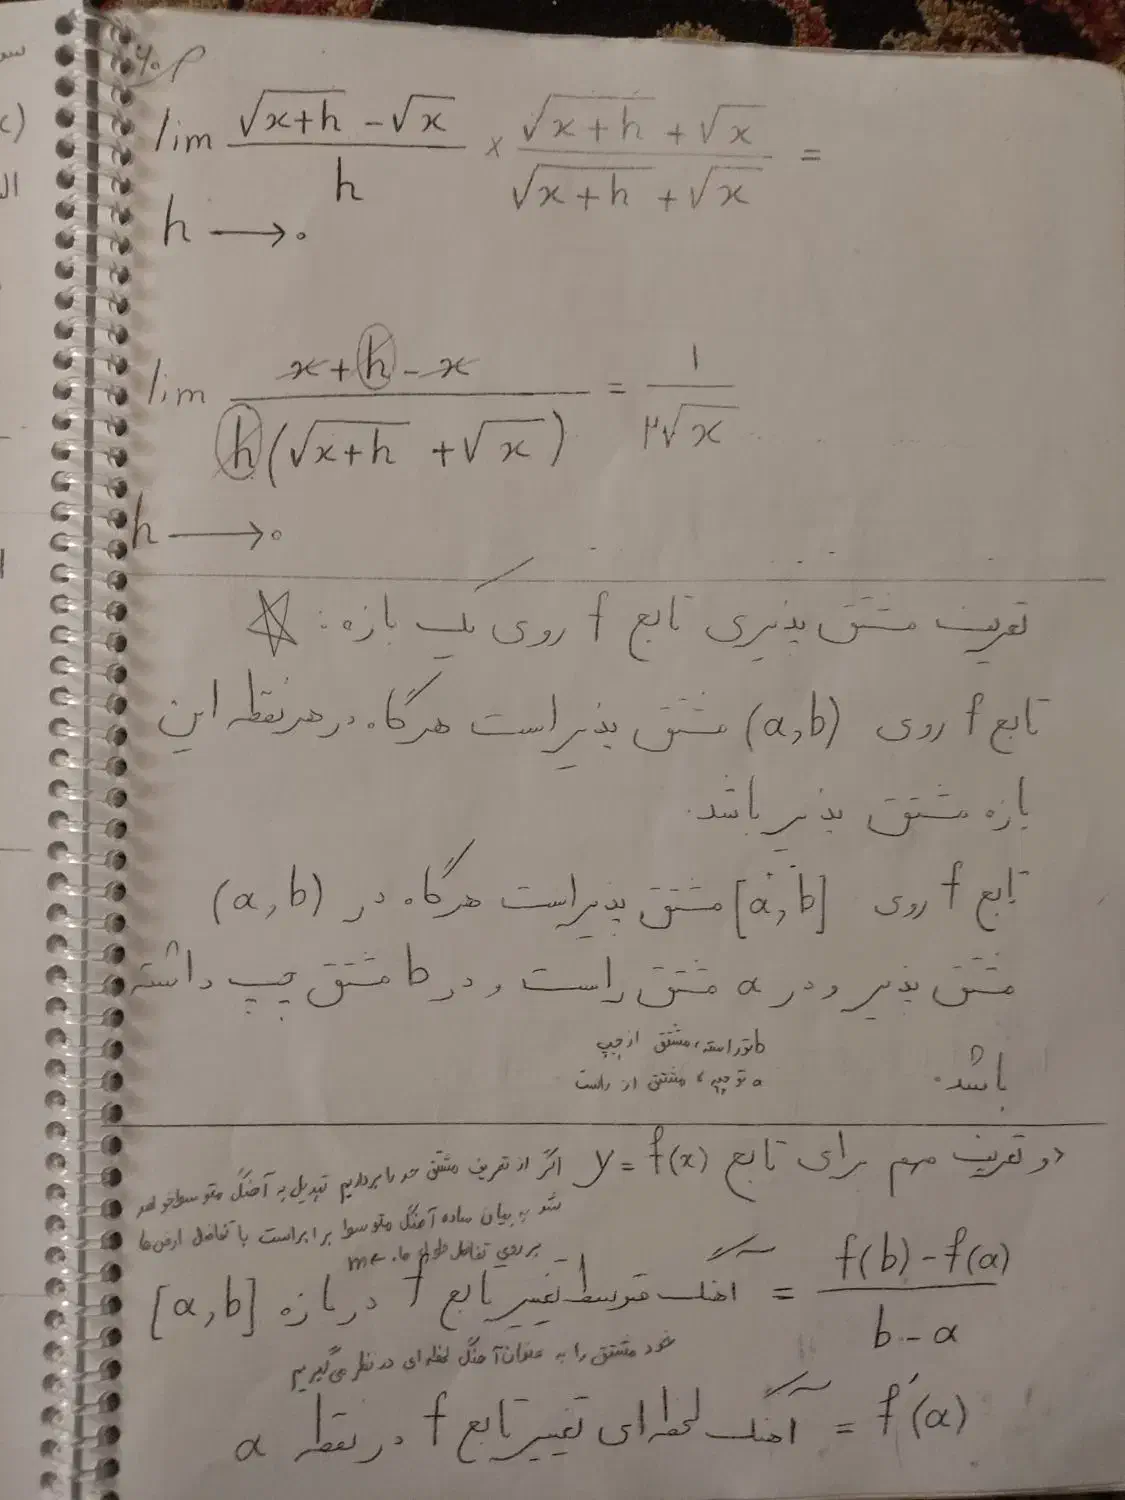 lim (√(x+h) - √x)/h × (√(x+h) + √x)/(√(x+h) + √x) =
h → ۰
lim (x+h-x)/(h(√(x+h) + √x)) = ۱/(۲√x)
h → ۰
تعریف مشتق پذیری تابع f روی یک بازه :
تابع f روی (a,b) مشتق پذیر است هرگاه در هر نقطه این
بازه مشتق پذیر باشد.
تابع f روی [a,b] مشتق پذیر است هرگاه در (a,b)
مشتق پذیر و در a مشتق راست و در b مشتق چپ داشته
باشد.
b تو راسته، مشتق از چپ
a تو چپه، مشتق از راست
دو تعریف مهم برای تابع y = f(x)
اگر از تعریف مشتق حد را برداریم تبدیل به آهنگ متوسط خواهد
شد به بیان ساده آهنگ متوسط برابر است با تفاضل ارض ها
بر روی تفاضل طول ها. m
(f(b) - f(a))/(b - a) = آهنگ متوسط تغییر تابع f در بازه [a,b]
خود مشتق را به عنوان آهنگ لحظه ای در نظر می گیریم
f'(a) = آهنگ لحظه ای تغییر تابع f در نقطه a